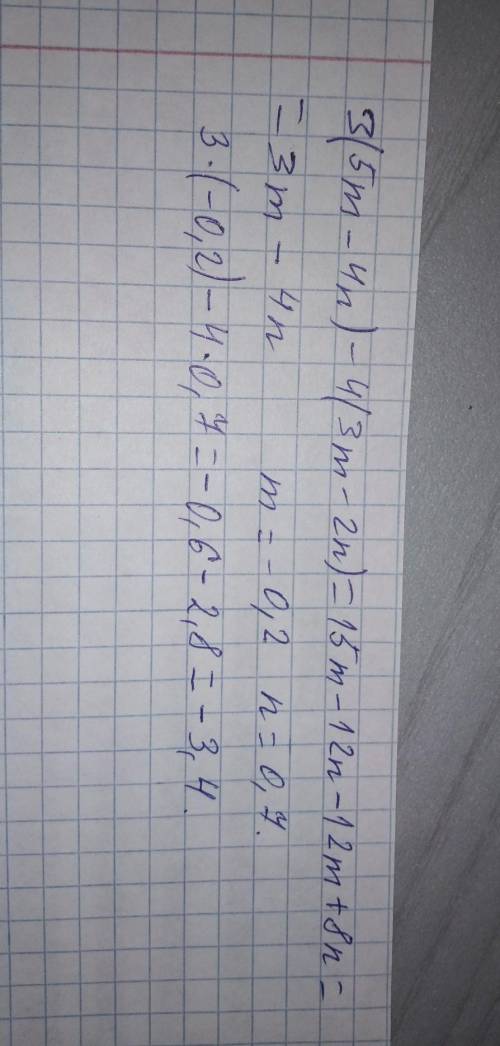 3(5m - 4n) - 4(3m - 2n) = 15m - 12n - 12m + 8n =
= 3m - 4n m = -0,2 n = 0,7.
3·(-0,2) - 4·0,7 = -0,6 - 2,8 = -3,4.